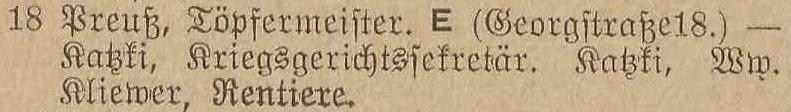 18 Preuß, Töpfermeister. E (Georgstraße18.) —
Katzki, Kriegsgerichtssekretär. Katzki, Ww.
Kliewer, Rentiere.